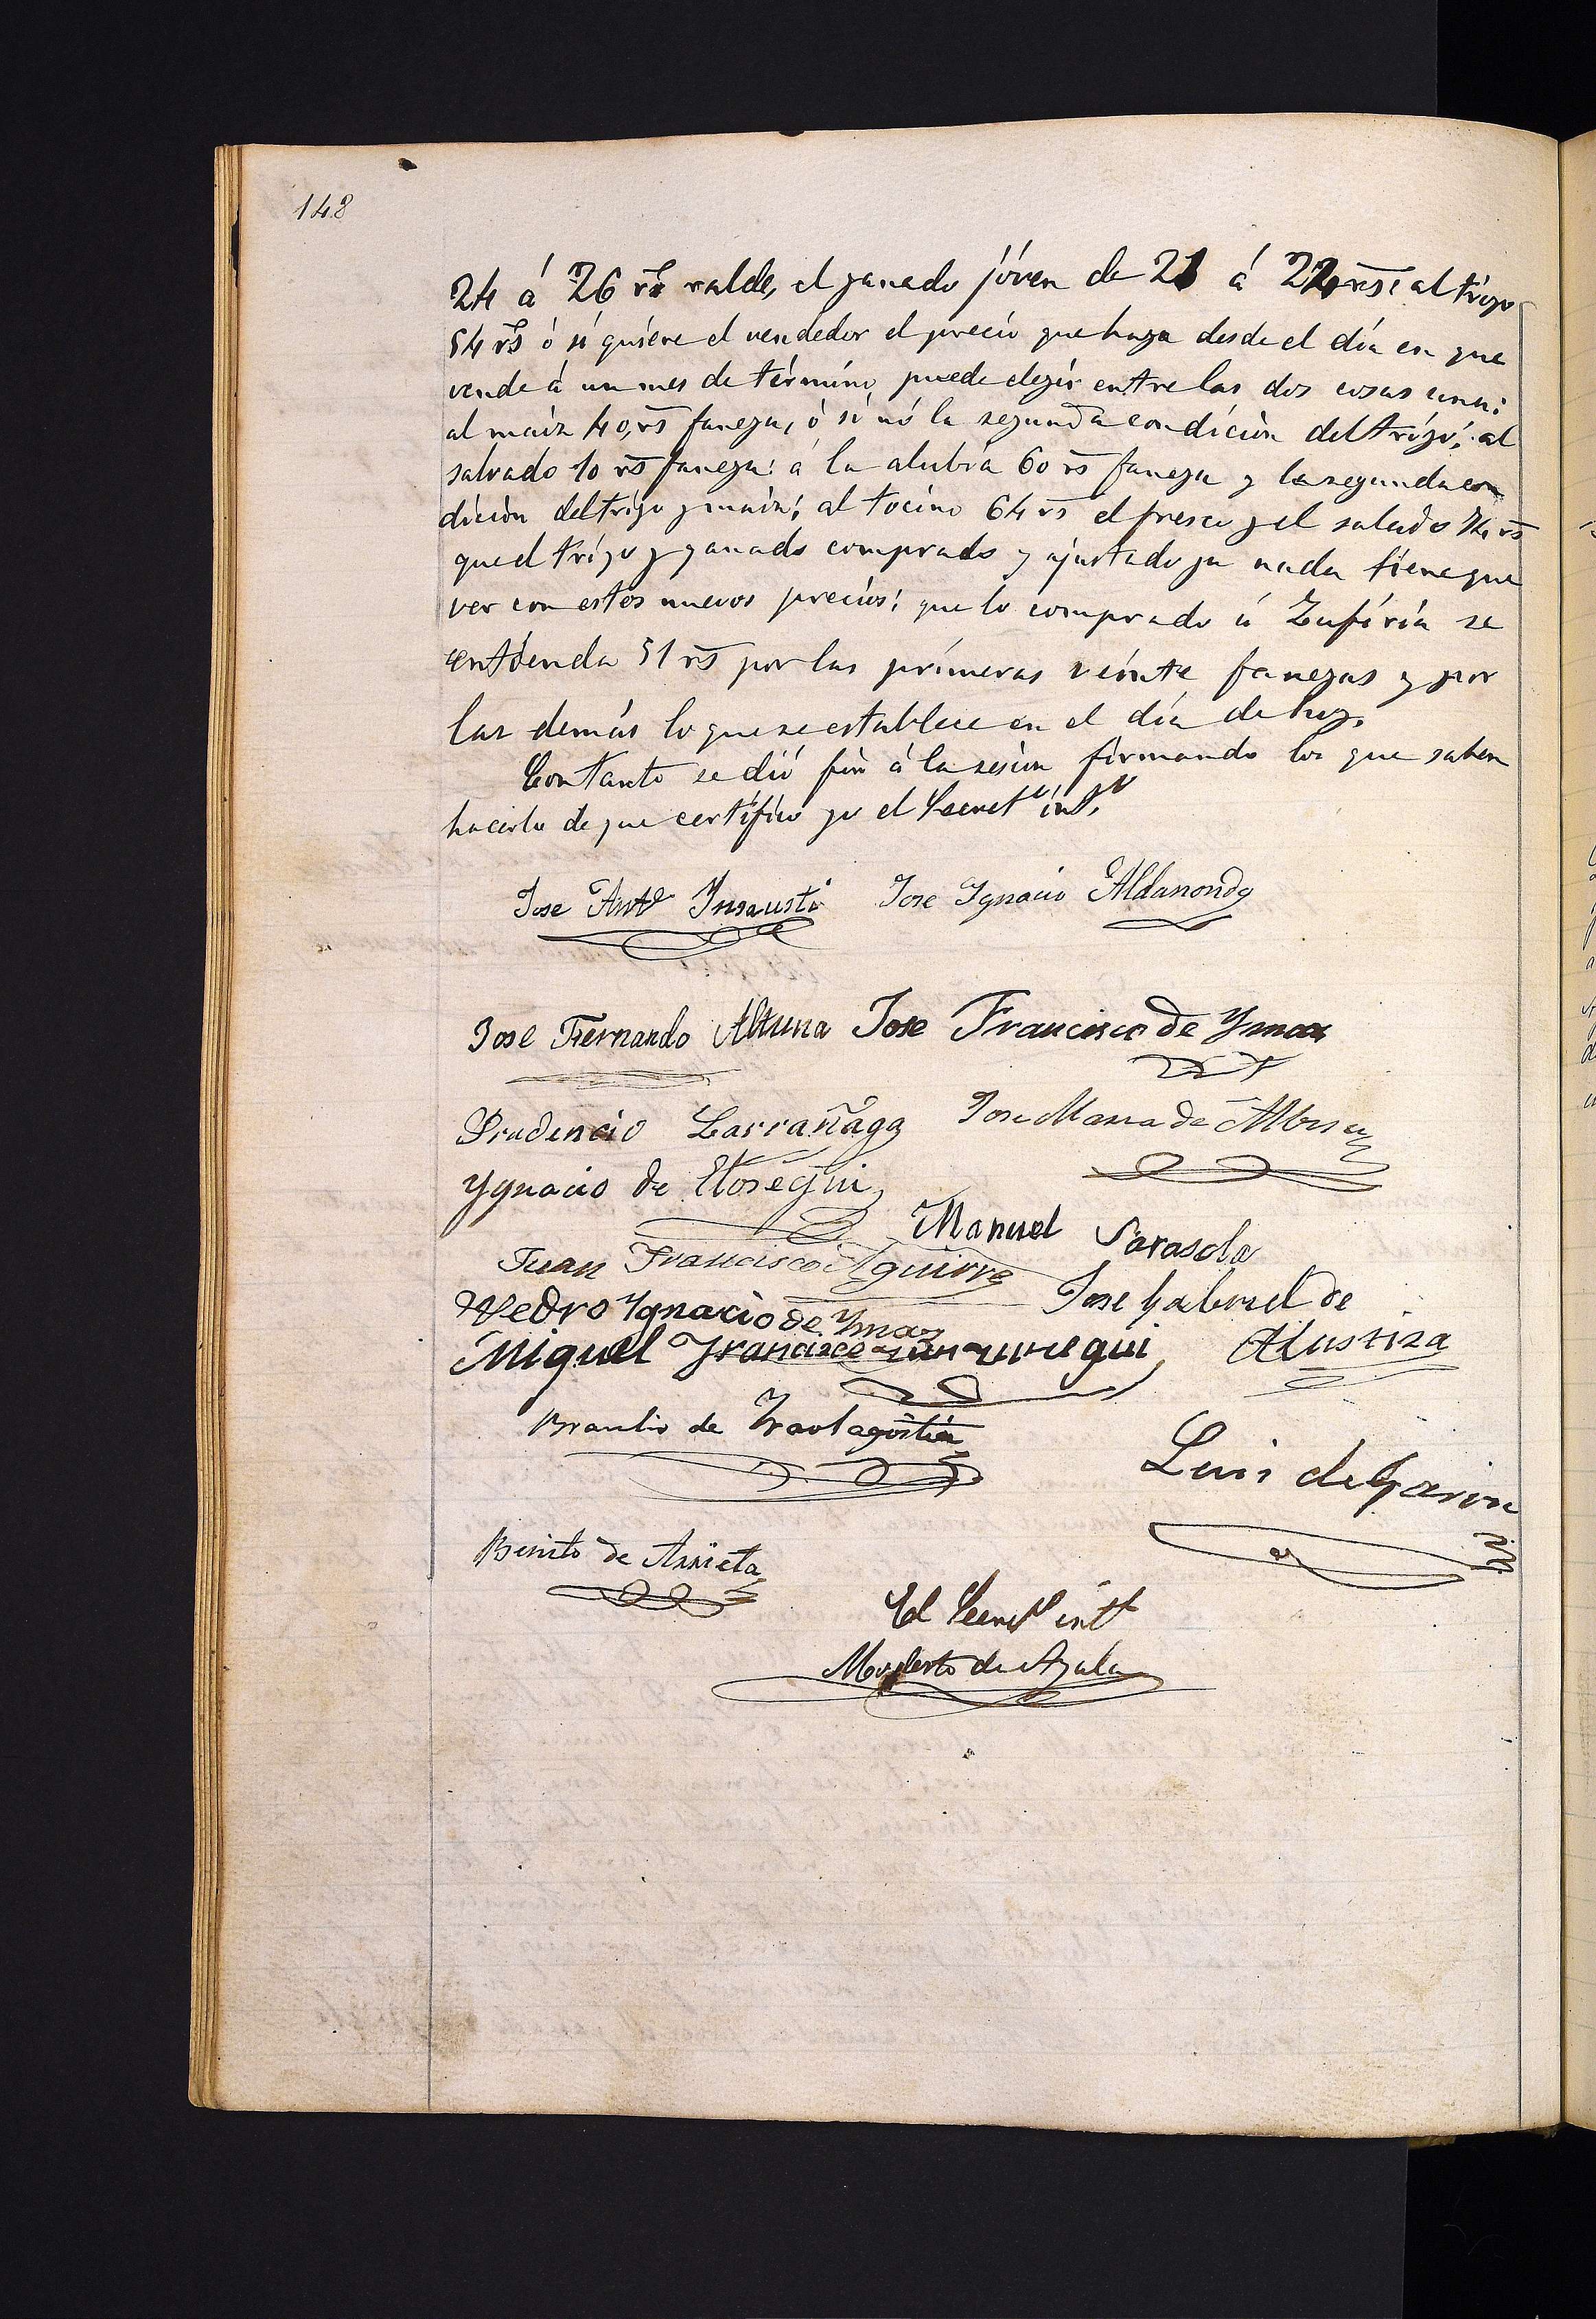 148
24 á 26 r.s ralde, el ganado jóven de 21 á 22 rs; al trigo
54 rs ó si quiere el vendedor el precio que haya desde el día en que
vende á un mes de término, puede elegir entre las dos cosas una:
al maiz 40, rs fanega, ó si nó la segunda condición del trigo; al
salvado 10 rs fanega: á la alubia 60 rs fanega y la segunda con
dición del trigo y maiz; al tocino 64 rs el fresco y el salado 74 rs
que el trigo y ganado comprado y ajustado ya nada tiene que
ver con estos nuevos precios; que lo comprado á Zufiria se
entienda 51 rs por las primeras veinte fanegas y por
las demás lo que se establece en el día de hoy.
Con tanto se dió fin á la sesión firmando los que saben
hacerlo de que certifico yo el Secret.o int.o
Jose Ant.o Ynsausti Jose Ygnacio Aldanondo
Jose Fernando Altuna Jose Francisco de Ymaz
Prudencio Larrañaga Jose Maria de Albisu
Ygnacio de Elosegui
Manuel Sarasola
Juan Francisco Aguirre
Pedro Ygnacio de Ymaz Jose Gabriel de
Miguel Francisco Alustiza
Braulio de
Luis de Garin
Benito de Arrieta
El Secret.o int.o
Modesto de Ayala